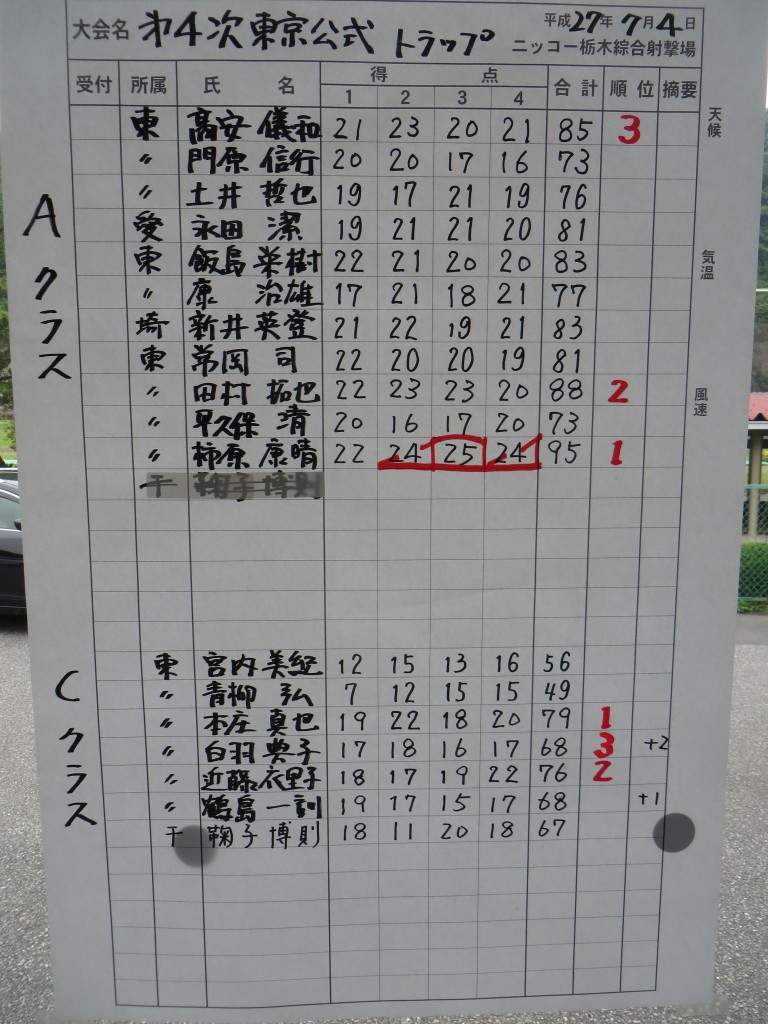 大会名 才4次東京公式 トラップ 平成27年7月4日
ニッコー栃木綜合射撃場
受付 所属 氏名 得点 合計 順位 摘要
1 2 3 4
天候
気温
風速
Aクラス
東 髙安 儀和 21 23 20 21 85 3
〃 門原 信行 20 20 17 16 73
〃 土井 哲也 19 17 21 19 76
愛 永田 潔 19 21 21 20 81
東 飯島 栄樹 22 21 20 20 83
〃 康 治雄 17 21 18 21 77
埼 新井 英登 21 22 19 21 83
東 常岡 司 22 20 20 19 81
〃 田村 拓也 22 23 23 20 88 2
〃 早久保 清 20 16 17 20 73
〃 柿原 康晴 22 24 25 24 95 1
千 鞠子 博則
Cクラス
東 宮内 美経 12 15 13 16 56
〃 青柳 弘 7 12 15 15 49
〃 本庄 真也 19 22 18 20 79 1
〃 白羽 典子 17 18 16 17 68 3 +2
〃 近藤 衣里子 18 17 19 22 76 2
〃 鶴島 一訓 19 17 15 17 68 +1
千 鞠子 博則 18 11 20 18 67